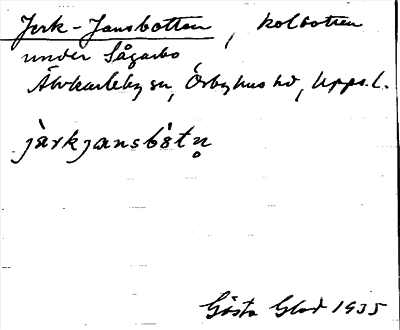 Jerk-Jansbotten, kolbotten
under Sågarbo
Älvkarleby sn, Örbyhus hd, Upps. l.
jàrkjansbòtn̥
Gösta Glad 1935